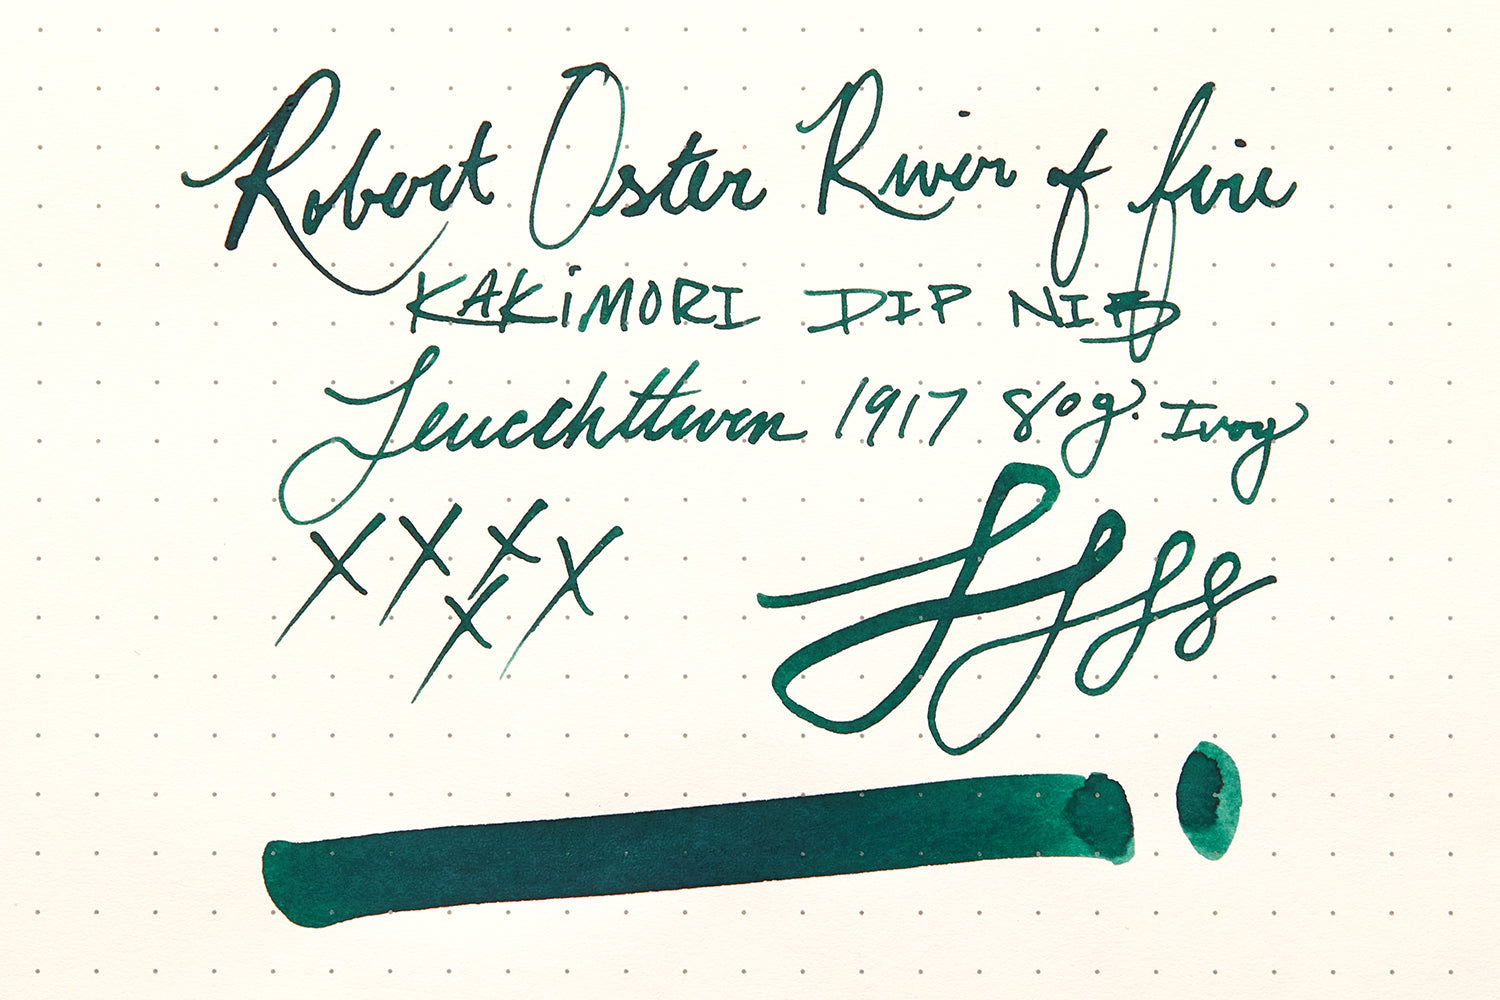 Robert Oster River of fire
KAKiMORI DIP NIB
Leuchtturm 1917 80g. Ivory
xxxx
x